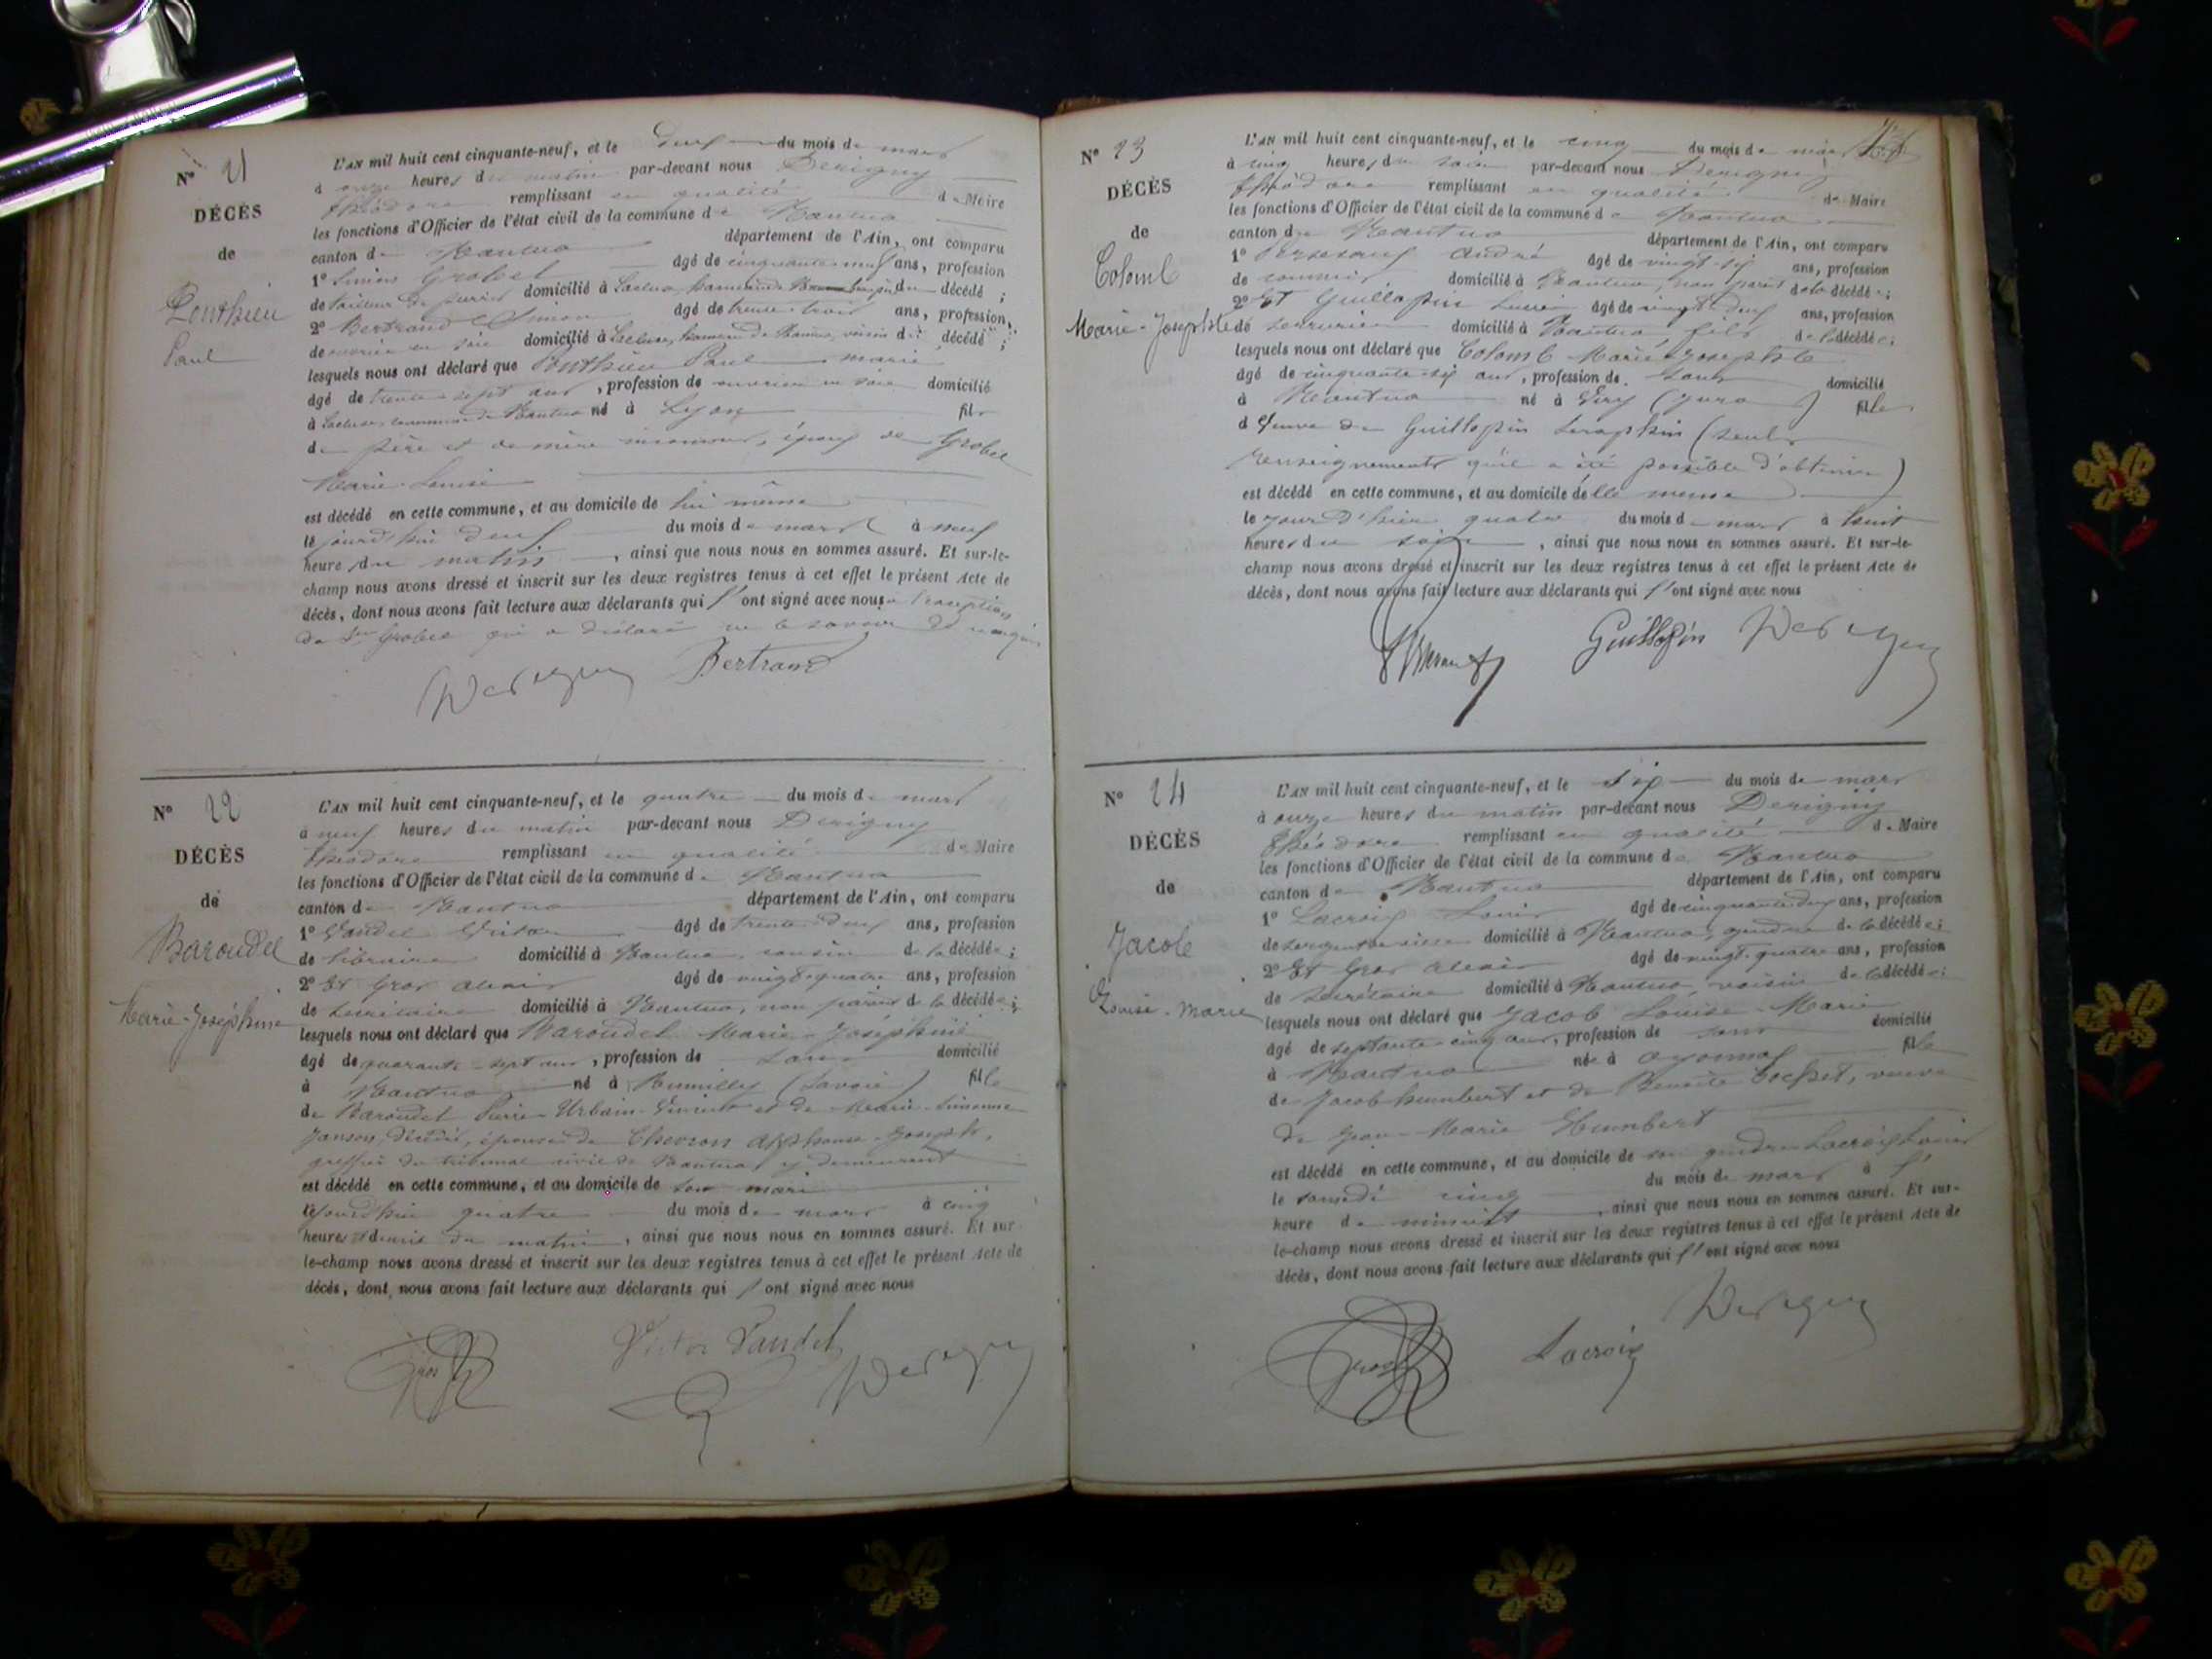 N° 21
DÉCÈS
de
Ponthieu
Paul
L'AN mil huit cent cinquante-neuf, et le deux du mois de mars
à onze heures du matin par-devant nous Derigny
Théodore remplissant en qualité de Maire
les fonctions d'Officier de l'état civil de la commune de Nantua
canton de Nantua département de l'Ain, ont comparu
1° Simon Grobel âgé de cinquante-neuf ans, profession
de tailleur de domicilié à Lacluse, hameau de du décédé;
2° Bertrand Simon âgé de trente-trois ans, profession
de ouvrier en soie domicilié à Lacluse, hameau de Nantua, voisin du décédé;
lesquels nous ont déclaré que Ponthieu Paul marié
âgé de trente sept ans, profession de ouvrier en soie domicilié
à Lacluse, commune de Nantua né à Lyon fils
de père et de mère inconnus, époux de Grobel
Marie-Louise
est décédé en cette commune, et au domicile de lui même
le jourd'hui deux du mois de mars à neuf
heures du matin, ainsi que nous nous en sommes assuré. Et sur-le-
champ nous avons dressé et inscrit sur les deux registres tenus à cet effet le présent Acte de
décès, dont nous avons fait lecture aux déclarants qui l'ont signé avec nous à l'exception
de Sr Grobel qui a déclaré ne le savoir de ce requis
Derigny Bertrand
N° 22
DÉCÈS
de
Baroudel
Marie-Joséphine
L'AN mil huit cent cinquante-neuf, et le quatre du mois de mars
à neuf heures du matin par-devant nous Derigny
Théodore remplissant en qualité de Maire
les fonctions d'Officier de l'état civil de la commune de Nantua
canton de Nantua département de l'Ain, ont comparu
1° Vandel Victor âgé de trente-deux ans, profession
de libraire domicilié à Nantua, cousin de la décédée;
2° Et Gros Alexis âgé de vingt-quatre ans, profession
de secrétaire domicilié à Nantua, non parent de la décédée;
lesquels nous ont déclaré que Baroudel Marie-Joséphine
âgé de quarante-sept ans, profession de sans domicilié
à Nantua né à Rumilly (Savoie) fille
de Baroudel Pierre-Urbain et de Marie
Janson, décédés, épouse de Chevron Alphonse-Joseph,
greffier du tribunal civil de Nantua y demeurant
est décédé en cette commune, et au domicile de son mari
le jourd'hui quatre du mois de mars à cinq
heures et demie du matin, ainsi que nous nous en sommes assuré. Et sur
le-champ nous avons dressé et inscrit sur les deux registres tenus à cet effet le présent Acte de
décès, dont nous avons fait lecture aux déclarants qui l'ont signé avec nous
Gros Victor Vandel Derigny
N° 23
DÉCÈS
de
Colomb
Marie-Josephte
L'AN mil huit cent cinquante-neuf, et le cinq du mois de mars
à cinq heures du soir par-devant nous Derigny
Théodore remplissant en qualité de Maire
les fonctions d'Officier de l'état civil de la commune de Nantua
canton de Nantua département de l'Ain, ont comparu
1° André âgé de vingt-six ans, profession
de commis domicilié à Nantua, non parent de la décédée;
2° Et Guillopin âgé de vingt-deux ans, profession
de serrurier domicilié à Nantua fils de la décédée;
lesquels nous ont déclaré que Colomb Marie-Josephte
âgé de cinquante-six ans, profession de sans domicilié
à Nantua né à Viry (Jura) fille
d Veuve de Guillopin Seraphin (seuls
renseignements qu'il a été possible d'obtenir)
est décédé en cette commune, et au domicile d'elle même
le jour d'hier quatre du mois de mars à huit
heures du soir, ainsi que nous nous en sommes assuré. Et sur-le-
champ nous avons dressé et inscrit sur les deux registres tenus à cet effet le présent Acte de
décès, dont nous avons fait lecture aux déclarants qui l'ont signé avec nous
Guillopin Derigny
N° 24
DÉCÈS
de
Jacob
Louise-Marie
L'AN mil huit cent cinquante-neuf, et le six du mois de mars
à onze heures du matin par-devant nous Derigny
Théodore remplissant en qualité de Maire
les fonctions d'Officier de l'état civil de la commune de Nantua
canton de Nantua département de l'Ain, ont comparu
1° Lacroix Louis âgé de cinquante-deux ans, profession
de sergent de ville domicilié à Nantua, gendre de la décédée;
2° Et Gros Alexis âgé de vingt-quatre ans, profession
de secrétaire domicilié à Nantua, voisin de la décédée;
lesquels nous ont déclaré que Jacob Louise-Marie
âgé de septante-cinq ans, profession de sans domicilié
à Nantua née à Oyonnax fille
de Jacob humbert et de Benoite Bochet, veuve
de Jean-Marie Humbert
est décédé en cette commune, et au domicile de son gendre Lacroix Louis
le samedi cinq du mois de mars à l'
heure de minuit, ainsi que nous nous en sommes assuré. Et sur-
le-champ nous avons dressé et inscrit sur les deux registres tenus à cet effet le présent Acte de
décès, dont nous avons fait lecture aux déclarants qui l'ont signé avec nous
Gros Lacroix Derigny